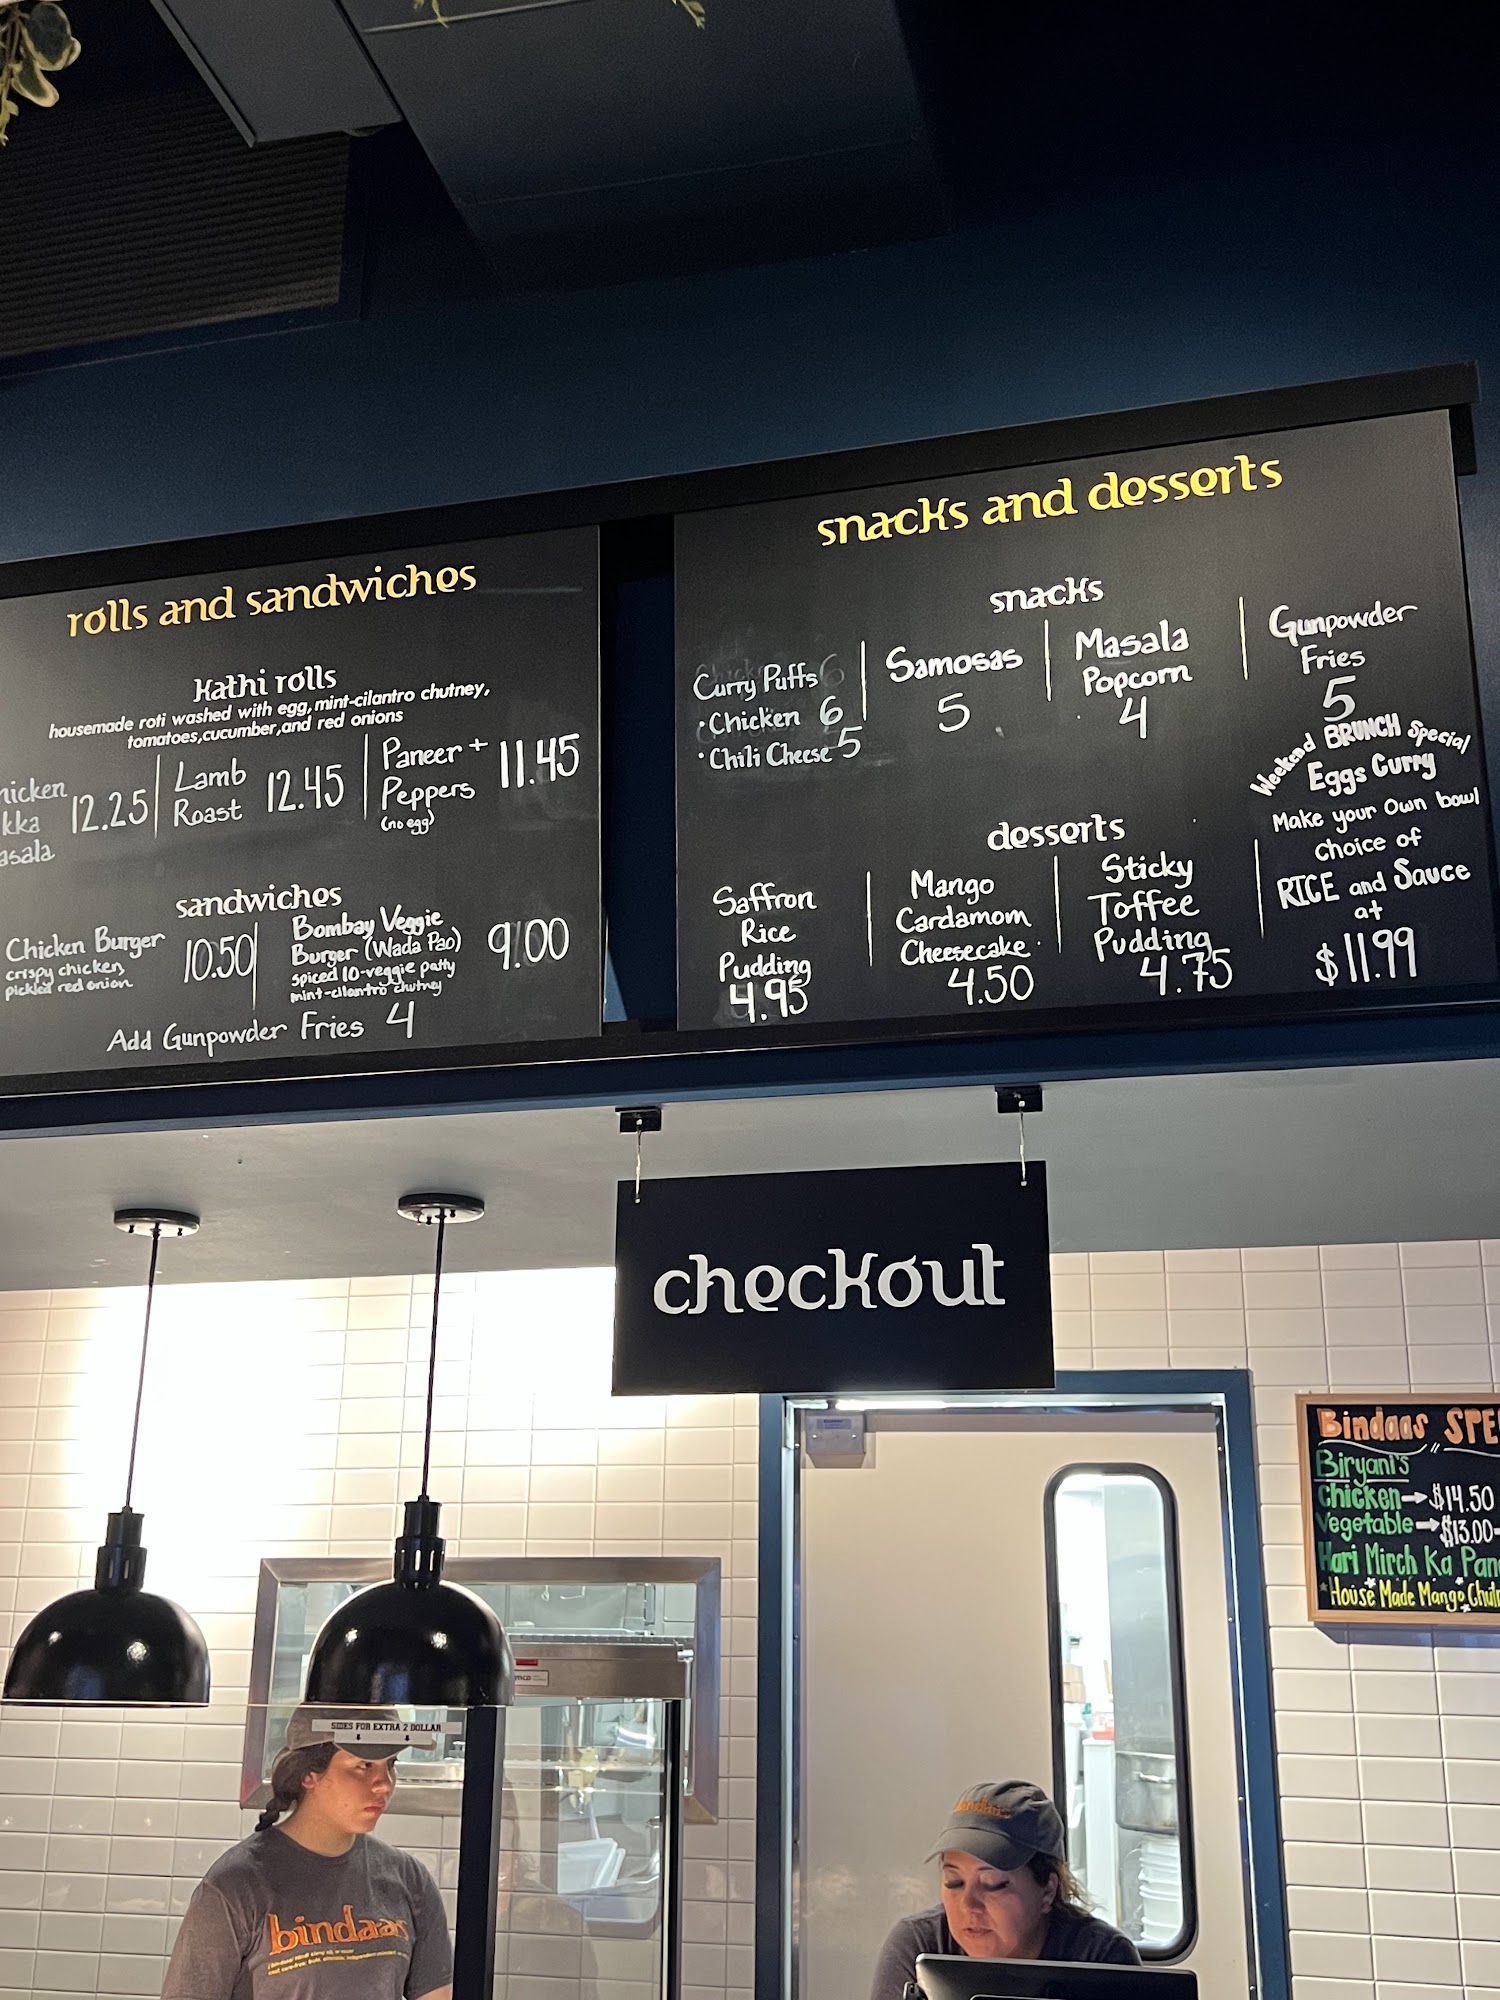 rolls and sandwiches
kathi rolls
housemade roti washed with egg, mint-cilantro chutney,
tomatoes, cucumber, and red onions
12.25
Lamb
Roast 12.45
Paneer +
Peppers 11.45
(no egg)
sandwiches
Chicken Burger 10.50
crispy chicken,
pickled red onion
Bombay Veggie
Burger (Wada Pao) 9.00
spiced 10-veggie patty
mint-cilantro chutney
Add Gunpowder Fries 4
snacks and desserts
snacks
Curry Puffs
• Chicken 6
• Chili Cheese 5
Samosas
5
Masala
Popcorn
4
Gunpowder
Fries
5
desserts
Saffron
Rice
Pudding
4.95
Mango
Cardamom
Cheesecake
4.50
Sticky
Toffee
Pudding
4.75
Weekend BRUNCH Special
Eggs Curry
Make your Own bowl
choice of
RICE and Sauce
at
$11.99
checkout
Bindaas
Biryani's
Chicken → $14.50
Vegetable → $13.00
Hari Mirch Ka
House Made Mango
SIDES FOR EXTRA 2 DOLLAR
bindaas